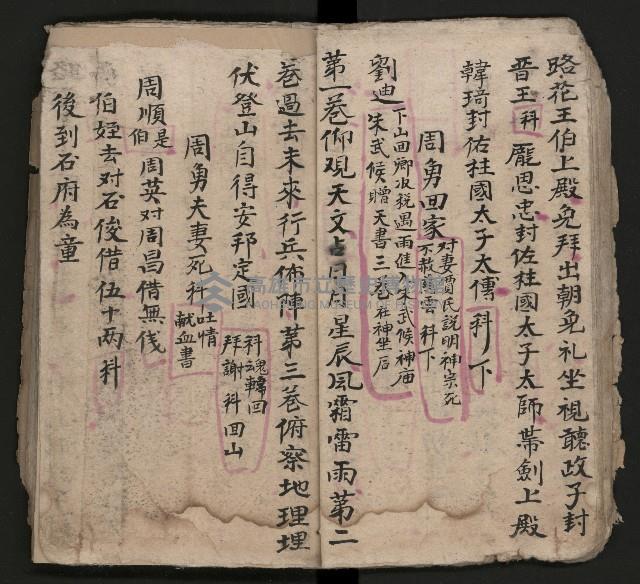 路花王伯上殿免拜出朝免礼坐視聽政子封
晋王科龐思忠封佐柱國太子太師帯劍上殿
韓琦封佐柱國太子太傳科下
周勇回家对妻賈氏説明神宗死
不救雲科下
劉迪下山回鄉收税遇一雨進入武候神庙
朱武候贈天書三卷在神坐后
第一卷仰观天文占日月星辰风霜雷雨第二
卷過去未來行兵佈陣第三卷俯察地理埋
伏登山自得安邦定國科魂轉回
拜謝科回山
周勇夫妻死科吐情
献血書
周順是周英对周昌借無伐
伯
伯姪去对石俊借伍十两科
後到石府為童
高雄市立歷史博物館
KAOHSIUNG MUSEUM OF HISTORY